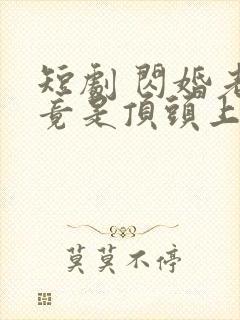 短劇 閃婚老
竟是頂頭上
莫莫不停